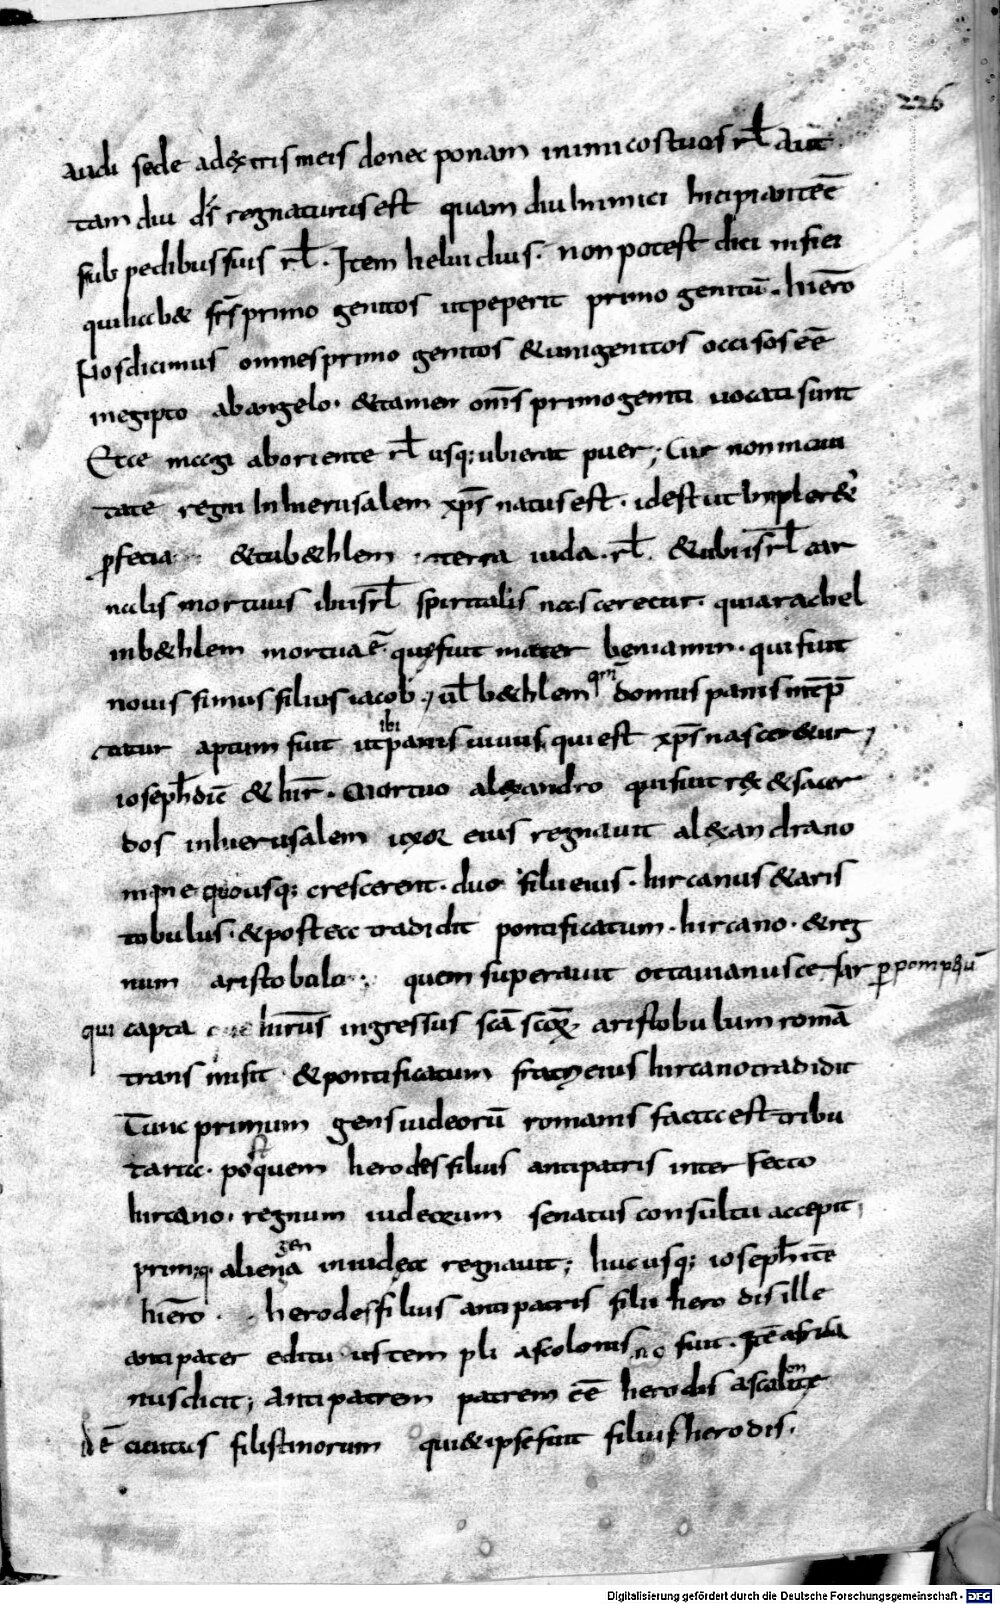 226
audi sede adextris meis donec ponam inimicos tuos rł Aut
tam diu ds regnaturus est quam diu inimici incipiant eē
sub pedibus suis rł. Item heluidius. non potest dici nisi ei
qui hab& frs primogenitos ut peperit primogenitū. hierō
Nos dicimus omnes primogenitos & unigenitos occisos eē
in egipto ab angelo. & tamen oms primogeniti uocati sunt
Ecce magi ab oriente rł usq; ubi erat puer; Cur non in ciui
tate regni In hierusalem xps natus est. id est ut Impler&
pfecia & tu b&hlem terra iuda. rł. & ubi isrł car
nalis mortuus ibi isrł spiritalis nasceretur. quia rachel
in b&hlem mortua ē quę fuit mater beniamin. qui fuit
nouissimus filius iacob; uł b&hlem domus panis int̄p̄
tatur aptum fuit ut ibi panis uiuus qui est xps nascer&ur;
ioseph dic̄ & hir̄. Mortuo alexandro qui fuit rex & sacer
dos in hierusalem uxor eius regnauit alexandra no
mine quousq; crescerent. duo filii eius. hircanus & aris
tobulus. & postea tradidit pontificatum. hircano. & reg
num aristobulo. quem superauit octauianus cesar p pompeiū
qui capta hirus ingressus scā scōr. aristobulum romā
transmisit & pontificatum fratri eius hircano tradidit
Tunc primum gens iudeorū romanis facta est tribu
taria. post quem herodes filius antipatris interfecto
hircano. regnum iudeorum senatus consultu accepit,
primusq; aliegena in iudea regnauit; hucusq; ioseph itē
hierō. herodes filius antipatris filii herodis ille
antipater edituus templi ascolonis fuit. Itē africa
nus dicit; antipatrem patrem eē herodis ascalonite
id ē ciuitas filistinorum qui & ipse fuit filius herodis.
Digitalisierung gefördert durch die Deutsche Forschungsgemeinschaft - DFG